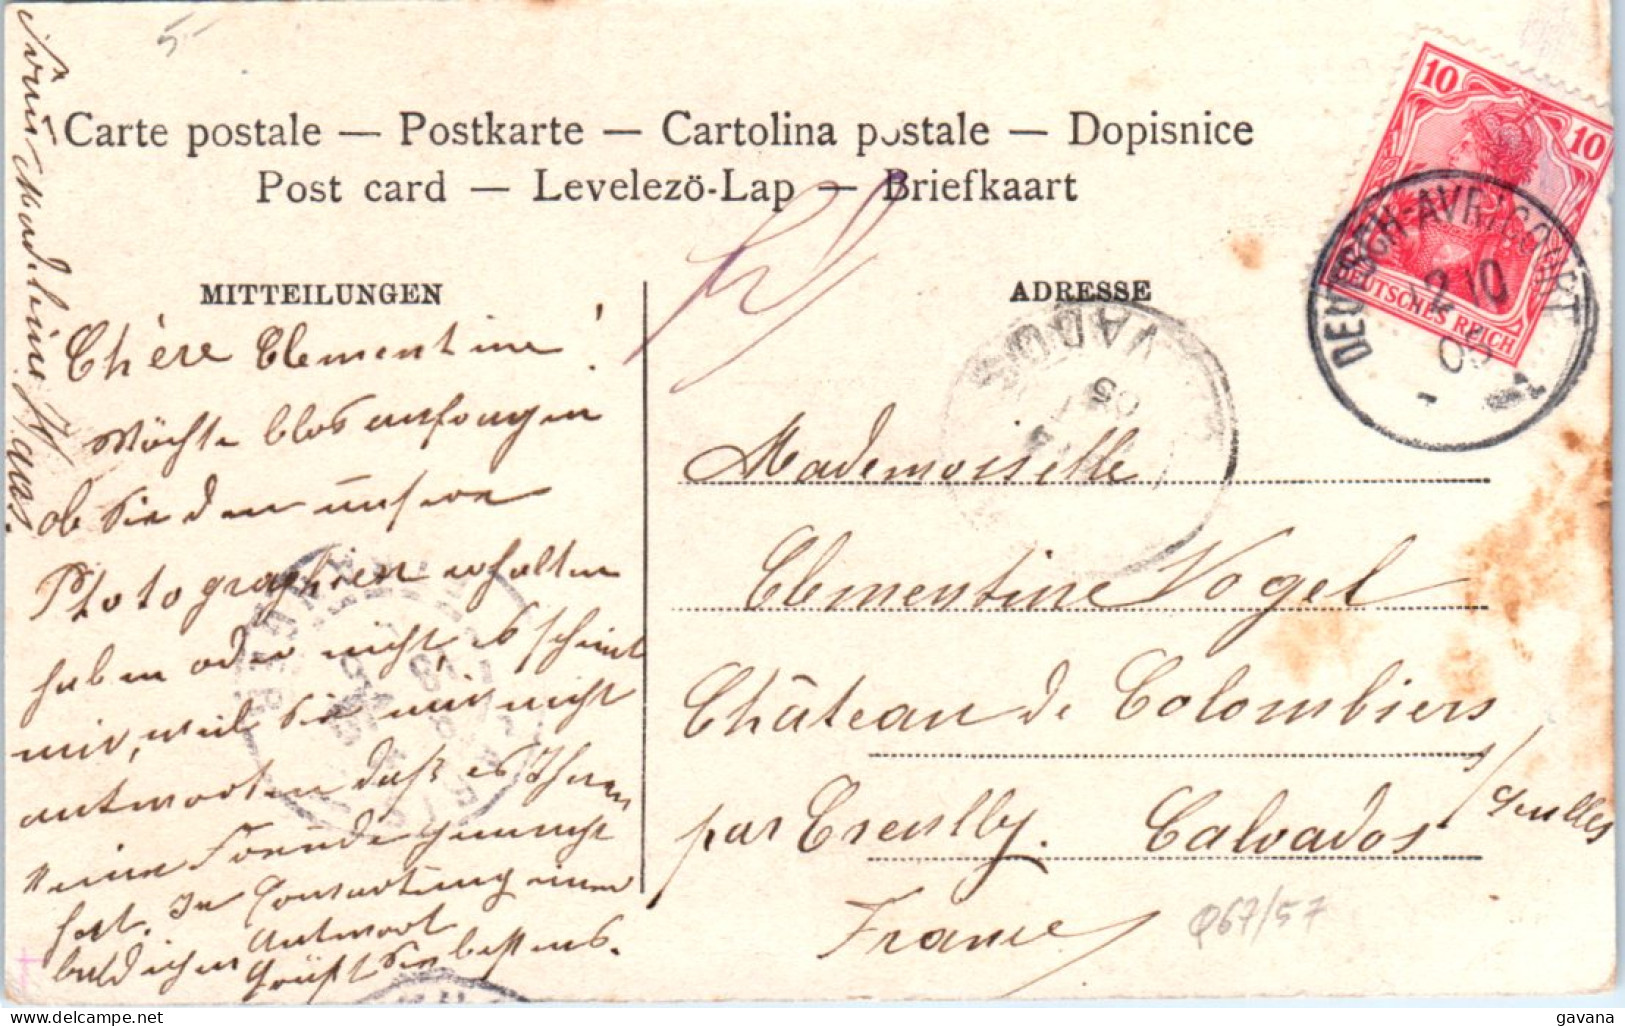 5.-
Carte postale — Postkarte — Cartolina postale — Dopisnice
Post card — Levelezö-Lap — Briefkaart
MITTEILUNGEN
Chère Clementine!
Möchte blos anfragen
ob Sie denn unsere
Photographien erhalten
haben oder nicht, es scheint
mir, weil Sie mir nicht
antworten daß es Ihnen
keine Freude gemacht
hat. In Erwartung einer
baldigen Antwort
Grüßt Sie bestens.
Madeleine Haas.
ADRESSE
Mademoiselle
Clementine Vogel
Château de Colombiers
par Creully. Calvados /Seulles
France
10
10
DEUTSCHES REICH
DEUTSCH-AVRICOURT
2 10
05
1
VADOS
05
Q67/57
gavana